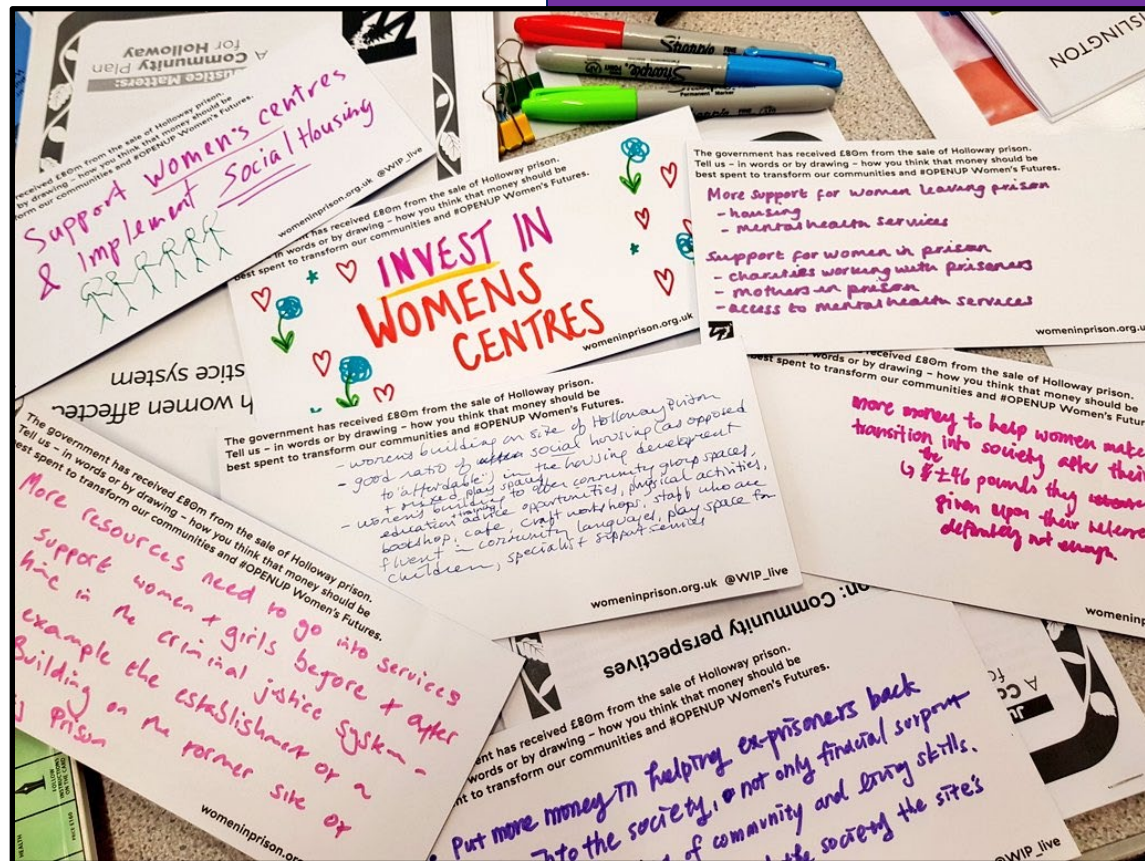 Justice Matters:
A Community Plan
for Holloway
received £80m from the sale of Holloway prison.
by drawing – how you think that money should be
form our communities and #OPENUP Women's Futures.
Support women's centres
& Implement Social Housing
womeninprison.org.uk @WIP_live
Sharpie
Sharpie
SLINGTON
has received £80m from the sale of Holloway prison.
in words or by drawing – how you think that money should be
best spent to transform our communities and #OPENUP Women's Futures.
INVEST IN
WOMENS
CENTRES
womeninprison.org.uk
The government has received £80m from the sale of Holloway prison.
Tell us – in words or by drawing – how you think that money should be
best spent to transform our communities and #OPENUP Women's Futures.
More support for women leaving prison
- housing
- mental health services
Support for women in prison
- charities working with prisoners
- mothers in prison
- access to mental health services
womeninprison.org.u
stice system
h women affected
The government has received £80m from the sale of Holloway prison.
Tell us – in words or by drawing – how you think that money should be
best spent to transform our communities and #OPENUP Women's Futures.
- women's building on site of Holloway Prison
- good ratio of social housing (as opposed
to 'affordable') in the housing development
+ play space
- women's building to offer community group spaces,
education + training, advice opportunities, physical activities,
bookshop, cafe, craft workshops, staff who are
fluent in community languages, play space for
children, specialist support service
womeninprison.org.uk @WIP_live
received £80m from the sale of Holloway prison.
words or by drawing – how you think that money should be
best spent to transform our communities and #OPENUP Women's Futur
more money to help women make
transition into society after their
the £46 pounds they
given upon their release
definitely not enough.
womeninp
The government has received £80m from the sale of Holloway prison.
Tell us – in words or by drawing – how you think that money should be
best spent to transform our communities and #OPENUP Women's Futures.
More resources need to go into services
support women + girls before + after
time in the criminal justice system -
example the establishment of a
Building on the former site of
Prison
womeninprison.or
on: Community perspectives
ent has received £80m from the sale of Holloway prison.
words or by drawing – how you think that money should be
nt to transform our communities and #OPENUP Women's Futures.
Put more money in helping ex-prisoners back
into the society, not only financial support
of community and living skills.
the society the site's
@WIP_live
FOLLOW
INSTRUCTIONS
ON THE CARD
HEALTH